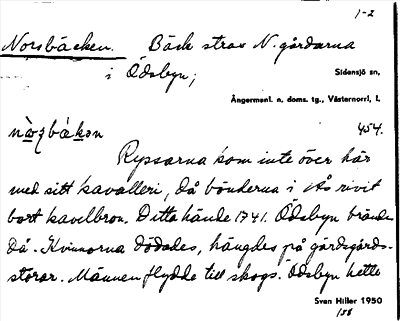 1-2
Norsbäcken. Bäck strax N. gårdarna
i Ödsbyn;
Sidensjö sn,
Ångermanl. n. doms. tg., Västernorrl. l.
454.
Ryssarna kom inte över här
med sitt kavalleri, då bönderna i Ås rivit
bort kavelbron. Detta hände 1741. Ödsbyn brändes
då. Kvinnorna dödades, hängdes på gärdsgårds-
störar. Männen flydde till skogs. Ödsbyn hette
Sven Hiller 1950
158